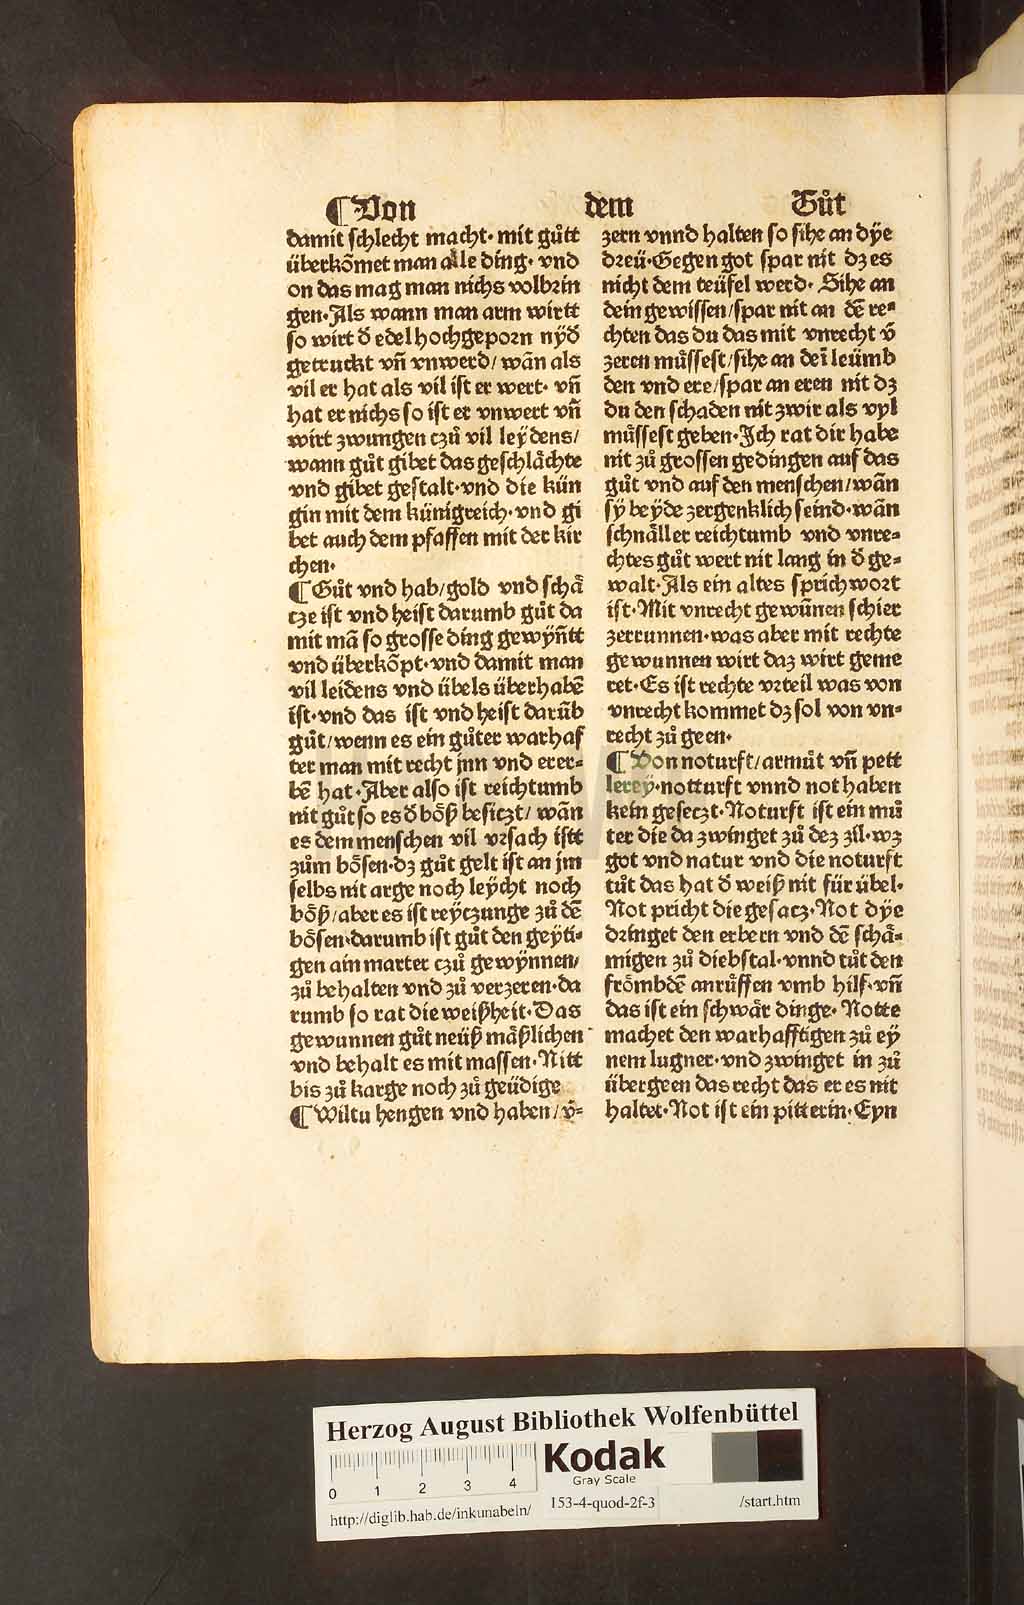 ¶Von dem Gůt
damit schlecht macht· mit gůtt
überkõmet man alle ding· vnd
on das mag man nichs volbrin
gen·Als wann man arm wirtt
so wirt d̕ edel hochgeporn nÿd̕
getruckt vñ vnwerd/ wãn als
vil er hat als vil ist er wert· vñ
hat er nichs so ist er vnwert vñ
wirt zwungen czů vil leÿdens/
wann gůt gibet das geschlaͤchte
vnd gibet gestalt·vnd die kün
gin mit dem künigreich·vnd gi
bet auch dem pfaffen mit der kir
chen·
¶Gůt vnd hab/gold vnd schaͤ
cze ist vnd heist darumb gůt da
mit mã so grosse ding gewÿñtt
vnd überkõpt·vnd damit man
vil leidens vnd übels überhabẽ
ist·vnd das ist vnd heist darũb
gůt/wenn es ein gůter warhaf
ter man mit recht jnn vnd erer⸗
bẽ hat·Aber also ist reichtumb
nit gůt so es d̕ boͤß besiczt/ wãn
es dem menschen vil vrsach istt
zům boͤsen·dz gůt gelt ist an jm
selbs nit arge noch leÿcht noch
boͤß/aber es ist reÿczunge zů dẽ
boͤsen·darumb ist gůt den geÿti⸗
gen ain marter czů gewÿnnen/
zů behalten vnd zů verzeren·da
rumb so rat die weißheit·Das
gewunnen gůt neüß maͤßlichen
vnd behalt es mit massen·Nitt
bis zů karge noch zů geüdige
¶Wiltu hengen vnd haben/v̕⸗
zern vnnd halten so sihe an dÿe
dreü·Gegen got spar nit dz es
nicht dem teüfel werd· Sihe an
dein gewissen/spar nit an dẽ re⸗
chten das du das mit vnrecht v̕
zeren můssest/sihe an deĩ leümb
den vnd ere/spar an eren nit dz
du den schaden nit zwir als vyl
můssest geben·Ich rat dir habe
nit zů grossen gedingen auf das
gůt vnd auf den menschen/wãn
sÿ beÿde zergenklich seind·wãn
schnaͤller reichtumb vnd vnre⸗
chtes gůt wert nit lang in d̕ ge⸗
walt·Als ein altes sprichwort
ist·Mit vnrecht gewũnen schier
zerrunnen·was aber mit rechte
gewunnen wirt daz wirt geme
ret·Es ist rechte vrteil was von
vnrecht kommet dz sol von vn⸗
recht zů geen·
¶Von noturft/armůt vñ pett
lereÿ·notturft vnnd not haben
kein geseczt·Noturft ist ein mů
ter die da zwinget zů dez zil·wz
got vnd natur vnd die noturft
tůt das hat d̕ weiß nit für übel·
Not pricht die gesacz·Not dÿe
dringet den erbern vnd dẽ schaͤ⸗
migen zů diebstal·vnnd tůt den
froͤmbdẽ anrůffen vmb hilf·vñ
das ist ein schwaͤr dinge· Notte
machet den warhafftigen zů eÿ
nem lugner·vnd zwinget in zů
übergeen das recht das er es nit
haltet·Not ist ein pitterin·Eyn
Herzog August Bibliothek Wolfenbüttel
Kodak
Gray Scale
0 1 2 3 4
http://diglib.hab.de/inkunabeln/ 153-4-quod-2f-3 /start.htm